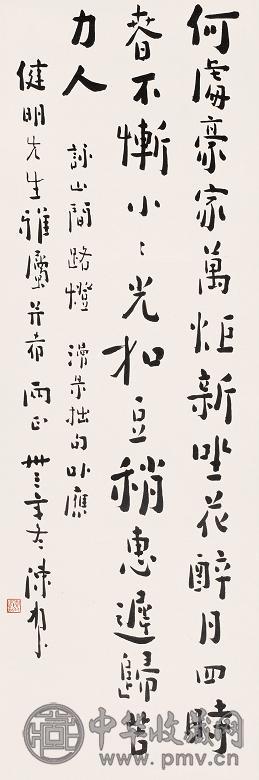 何處豪家萬炬新坐花醉月四時
春不慚小〻光如豆稍惠遲歸苦
力人 詠山間路燈 拙句以應
健明先生雅屬并希兩正 卅三年冬
中华收藏网
www.pmv.cn